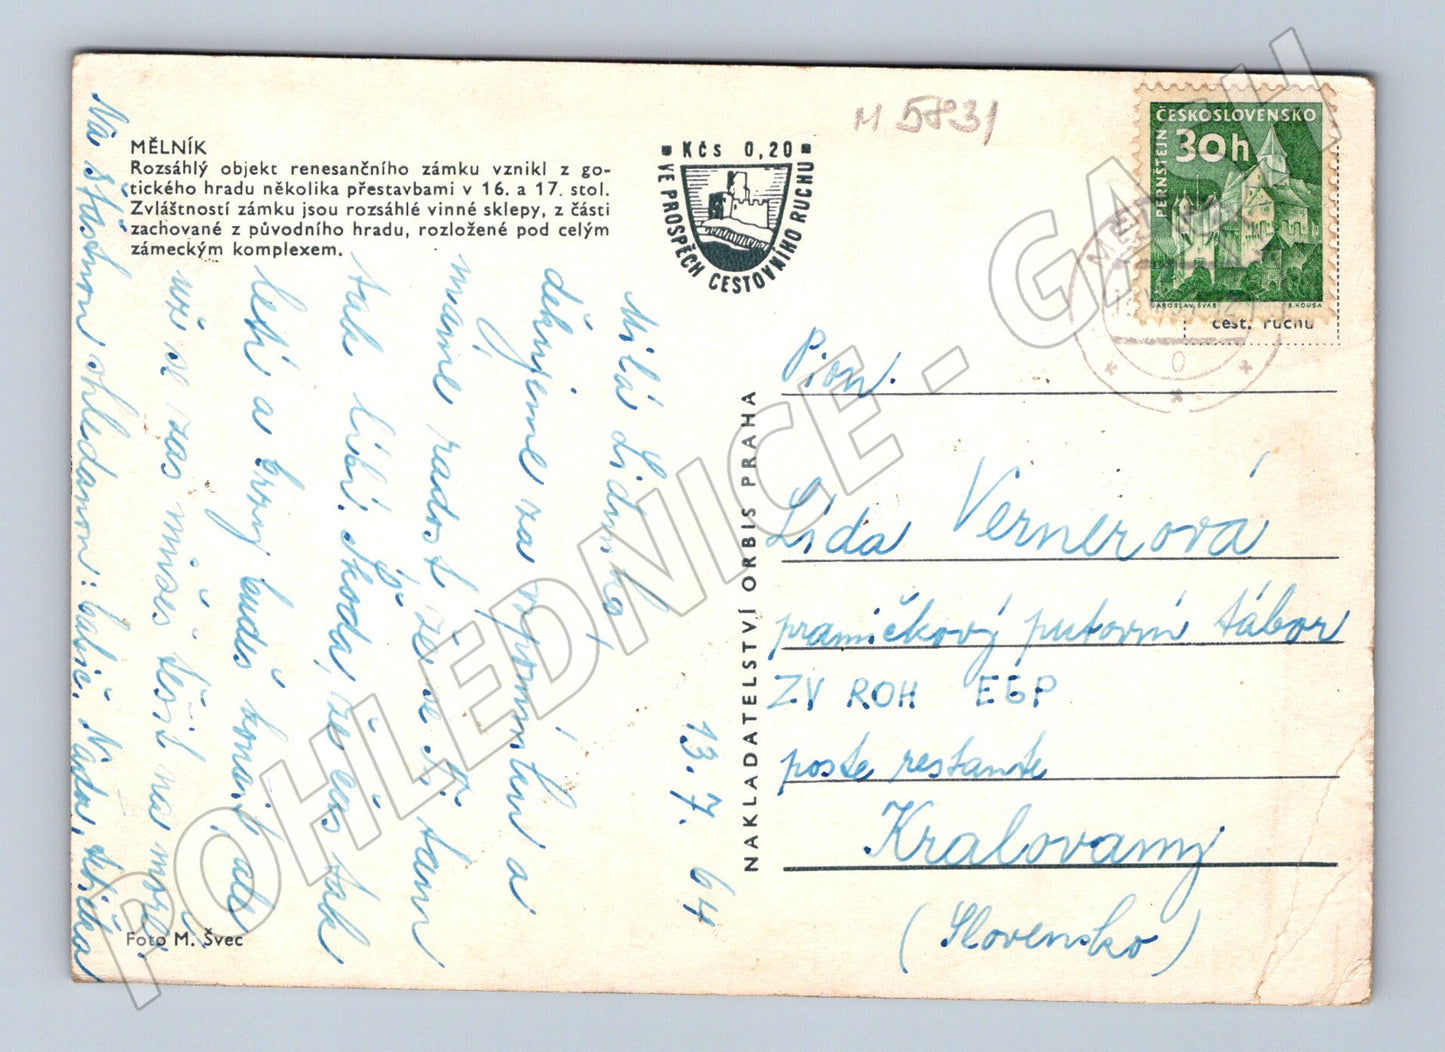 MĚLNÍK
Rozsáhlý objekt renesančního zámku vznikl z go-
tického hradu několika přestavbami v 16. a 17. stol.
Zvláštností zámku jsou rozsáhlé vinné sklepy, z části
zachované z původního hradu, rozložené pod celým
zámeckým komplexem.
Kčs 0,20
VE PROSPĚCH CESTOVNÍHO RUCHU
M 5831
ČESKOSLOVENSKO
30h
PERNŠTEJN
JAROSLAV ŠVÁB
B. HOUSA
cest. ruchu
13. 7. 64
Milá Lidunko,
děkujeme za vzpomínku a
máme radost že se ti tam
tak líbí. Škoda, že čas tak
letí a brzy budeš konat, ale
už se zas můžeš těšit na moře.
Na šťastnou shledanou: babič. Naďa,
NAKLADATELSTVÍ ORBIS PRAHA
Pion.
Lída Vernerová
pramičkový putovní tábor
ZV ROH EGP
poste restante
Kralovany
(Slovensko)
Foto M. Švec
POHLEDNICE - GASH